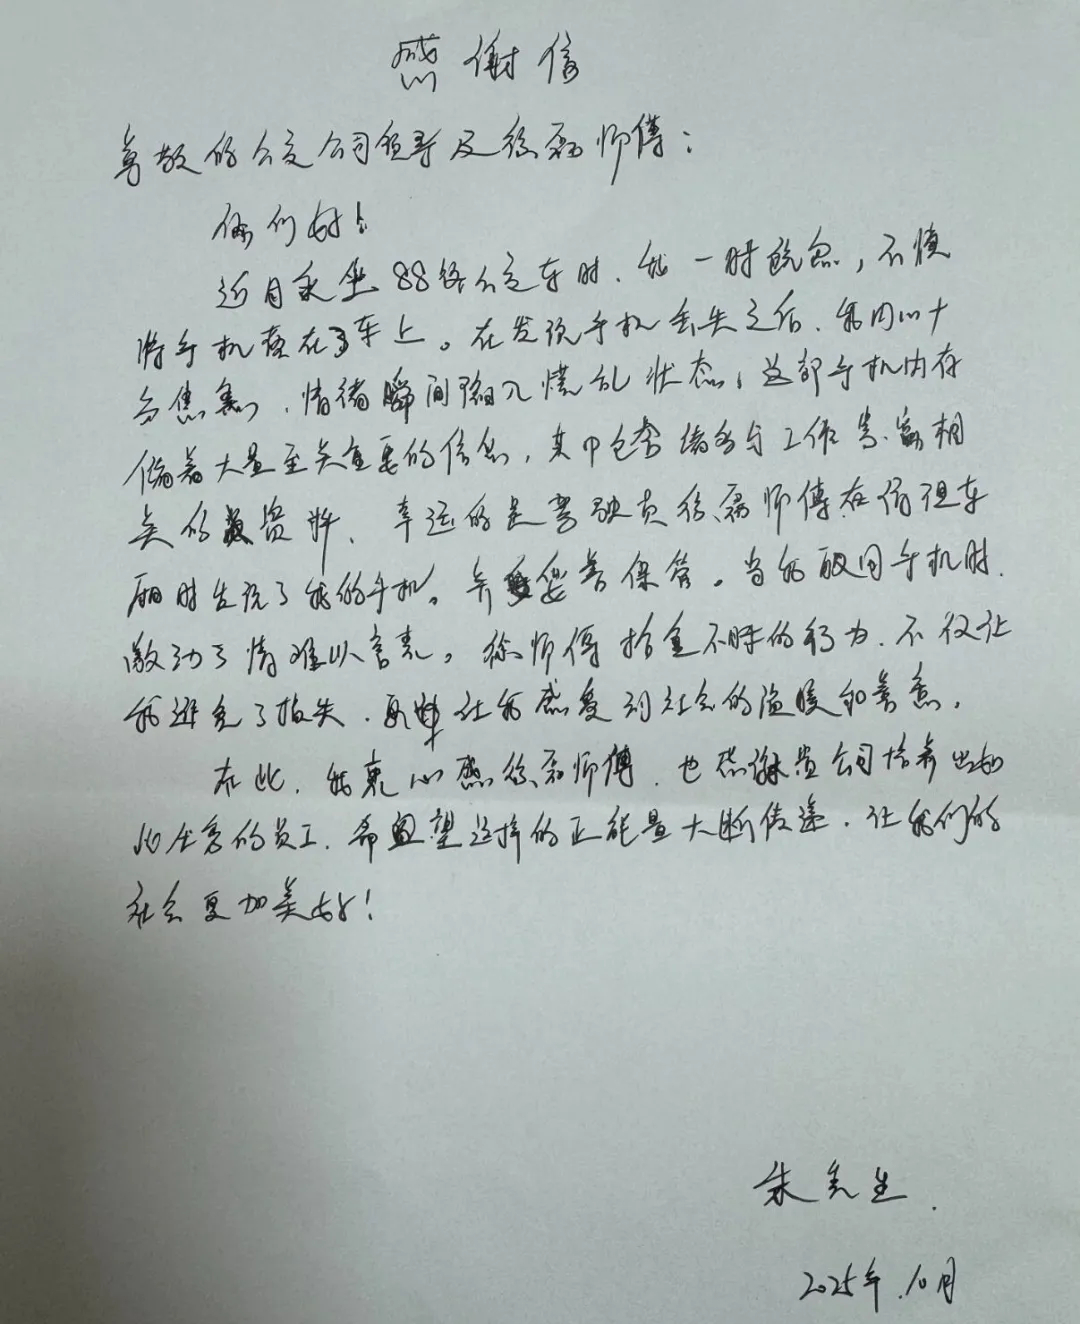 感谢信
尊敬的公交公司领导及徐磊师傅：
你们好！
近日乘坐88路公交车时，我一时疏忽，不慎
将手机落在了车上。在发现手机丢失之后，我内心十
分焦急，情绪瞬间陷入慌乱状态，这部手机内存
储着大量至关重要的信息，其中包含诸多与工作相
关的资料，幸运的是驾驶员徐磊师傅在清理车
厢时发现了我的手机。并妥善保管。当我取回手机时，
激动之情难以言表。徐师傅拾金不昧的行为，不仅让
我避免了损失，更让我感受到社会的温暖和善意。
在此，我衷心感徐磊师傅，也感谢贵公司培养出如
此优秀的员工，希望这样的正能量不断传递，让我们的
社会更加美好！
朱先生
2025年10月